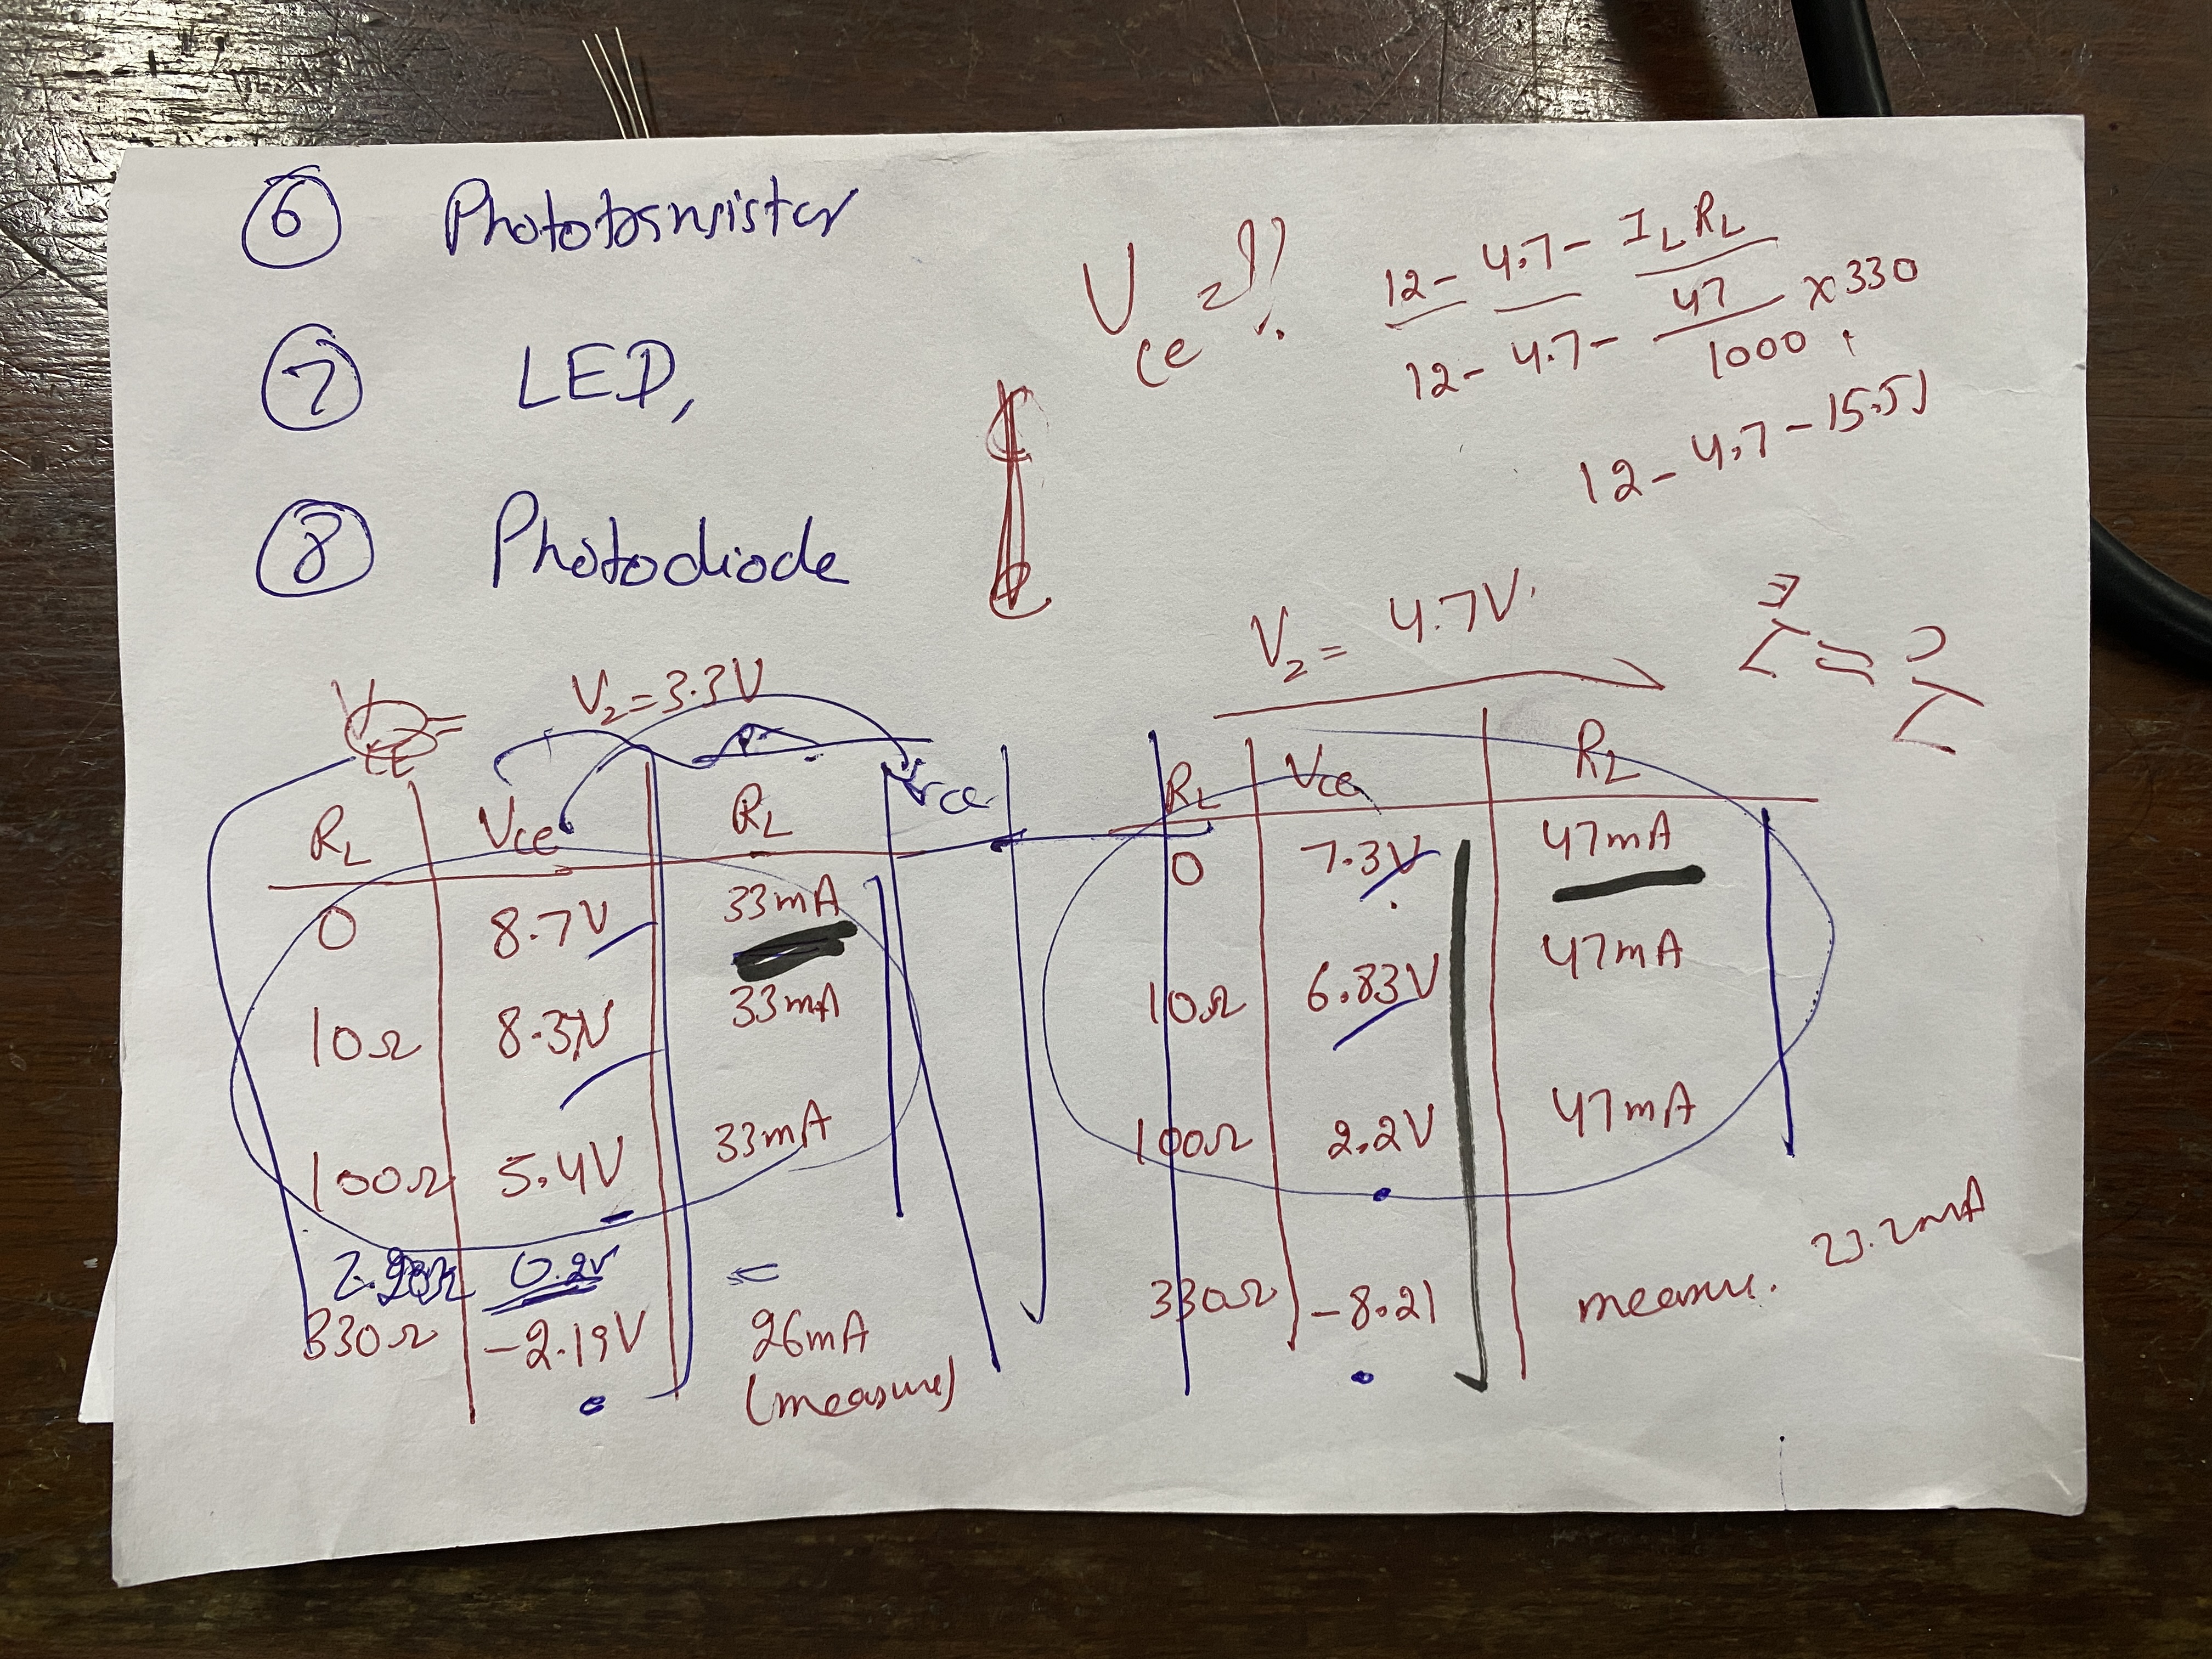 6 Phototransistor
7 LED,
8 Photodiode
Vce = ??
12 - 4.7 - IL RL
12 - 4.7 - 47/1000 x 330
12 - 4.7 - 15.51
V2 = 3.3V
RL Vce RL Vce
0 8.7V 33mA
10Ω 8.37V 33mA
100Ω 5.4V 33mA
0.2V
330Ω -2.19V 26mA
(measure)
V2 = 4.7V
IE = IC
RL Vce RL
0 7.3V 47mA
10Ω 6.83V 47mA
100Ω 2.2V 47mA
330Ω -8.21 measure. 23.2mA